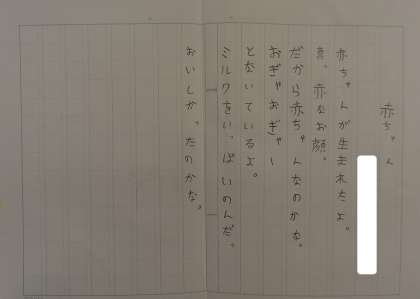 赤ちゃん
赤ちゃんが生まれたよ。
まっ赤なお顔。
だから赤ちゃんなのかな。
おぎゃおぎゃー
とないているよ。
ミルクをいっぱいのんだ。
おいしかったのかな。